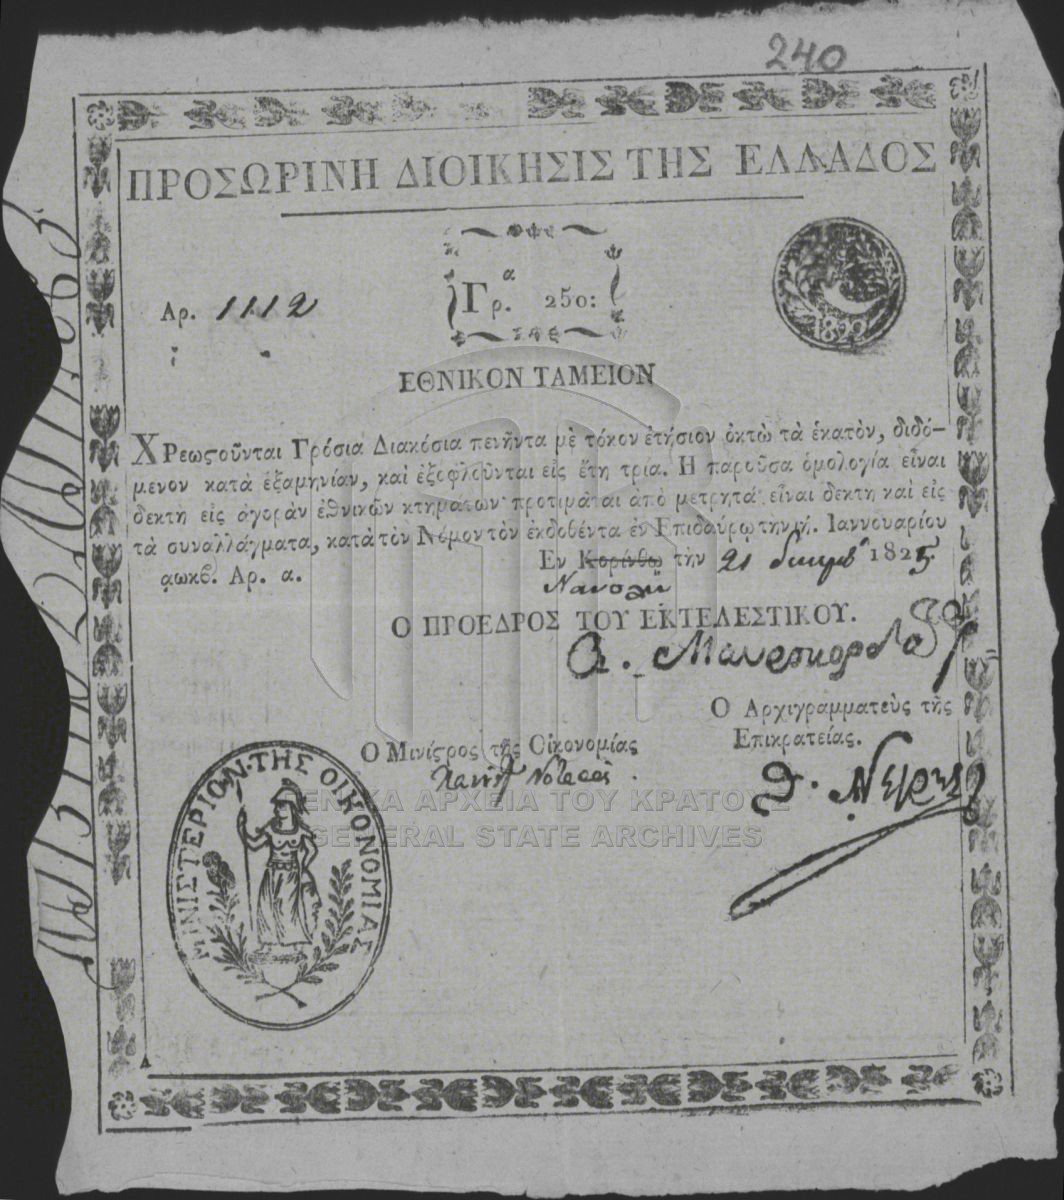 240
ΠΡΟΣΩΡΙΝΗ ΔΙΟΙΚΗΣΙΣ ΤΗΣ ΕΛΛΑΔΟΣ
Αρ. 1112
Γρ.α 250:
1822
ΕΘΝΙΚΟΝ ΤΑΜΕΙΟΝ
ΧΡεωϛοῦνται Γρόσια Διακόσια πενῆντα μὲ τόκον ἐτήσιον ὀκτὼ τὰ ἑκατὸν, διδό-
μενον κατὰ ἑξαμηνίαν, καὶ ἐξοφλοῦνται εἰς ἔτη τρία. Η παροῦσα ὁμολογία εἶναι
δεκτὴ εἰς ἀγορὰν ἐθνικῶν κτημάτων· προτιμᾶται ἀπὸ μετρητά· εἶναι δεκτὴ καὶ εἰς
τὰ συναλλάγματα, κατὰ τὸν Νόμον τὸν ἐκδοθέντα ἐν Επιδαύρῳ τὴν ιή. Ιαννουαρίου
αωκβ. Αρ. α.
Εν Κορίνθῳ τὴν 21 1825
Ο ΠΡΟΕΔΡΟΣ ΤΟΥ ΕΚΤΕΛΕΣΤΙΚΟΥ.
Α. Μαυροκορδάτος
Ο Αρχιγραμματεὺς τῆς
Επικρατείας.
Ο Μινίϛρος τῆς Οἰκονομίας
Νοταρᾶς
Θ. Νέγρης
ΜΙΝΙΣΤΕΡΙΟΝ ΤΗΣ ΟΙΚΟΝΟΜΙΑΣ
ΓΕΝΙΚΑ ΑΡΧΕΙΑ ΤΟΥ ΚΡΑΤΟΥΣ
GENERAL STATE ARCHIVES